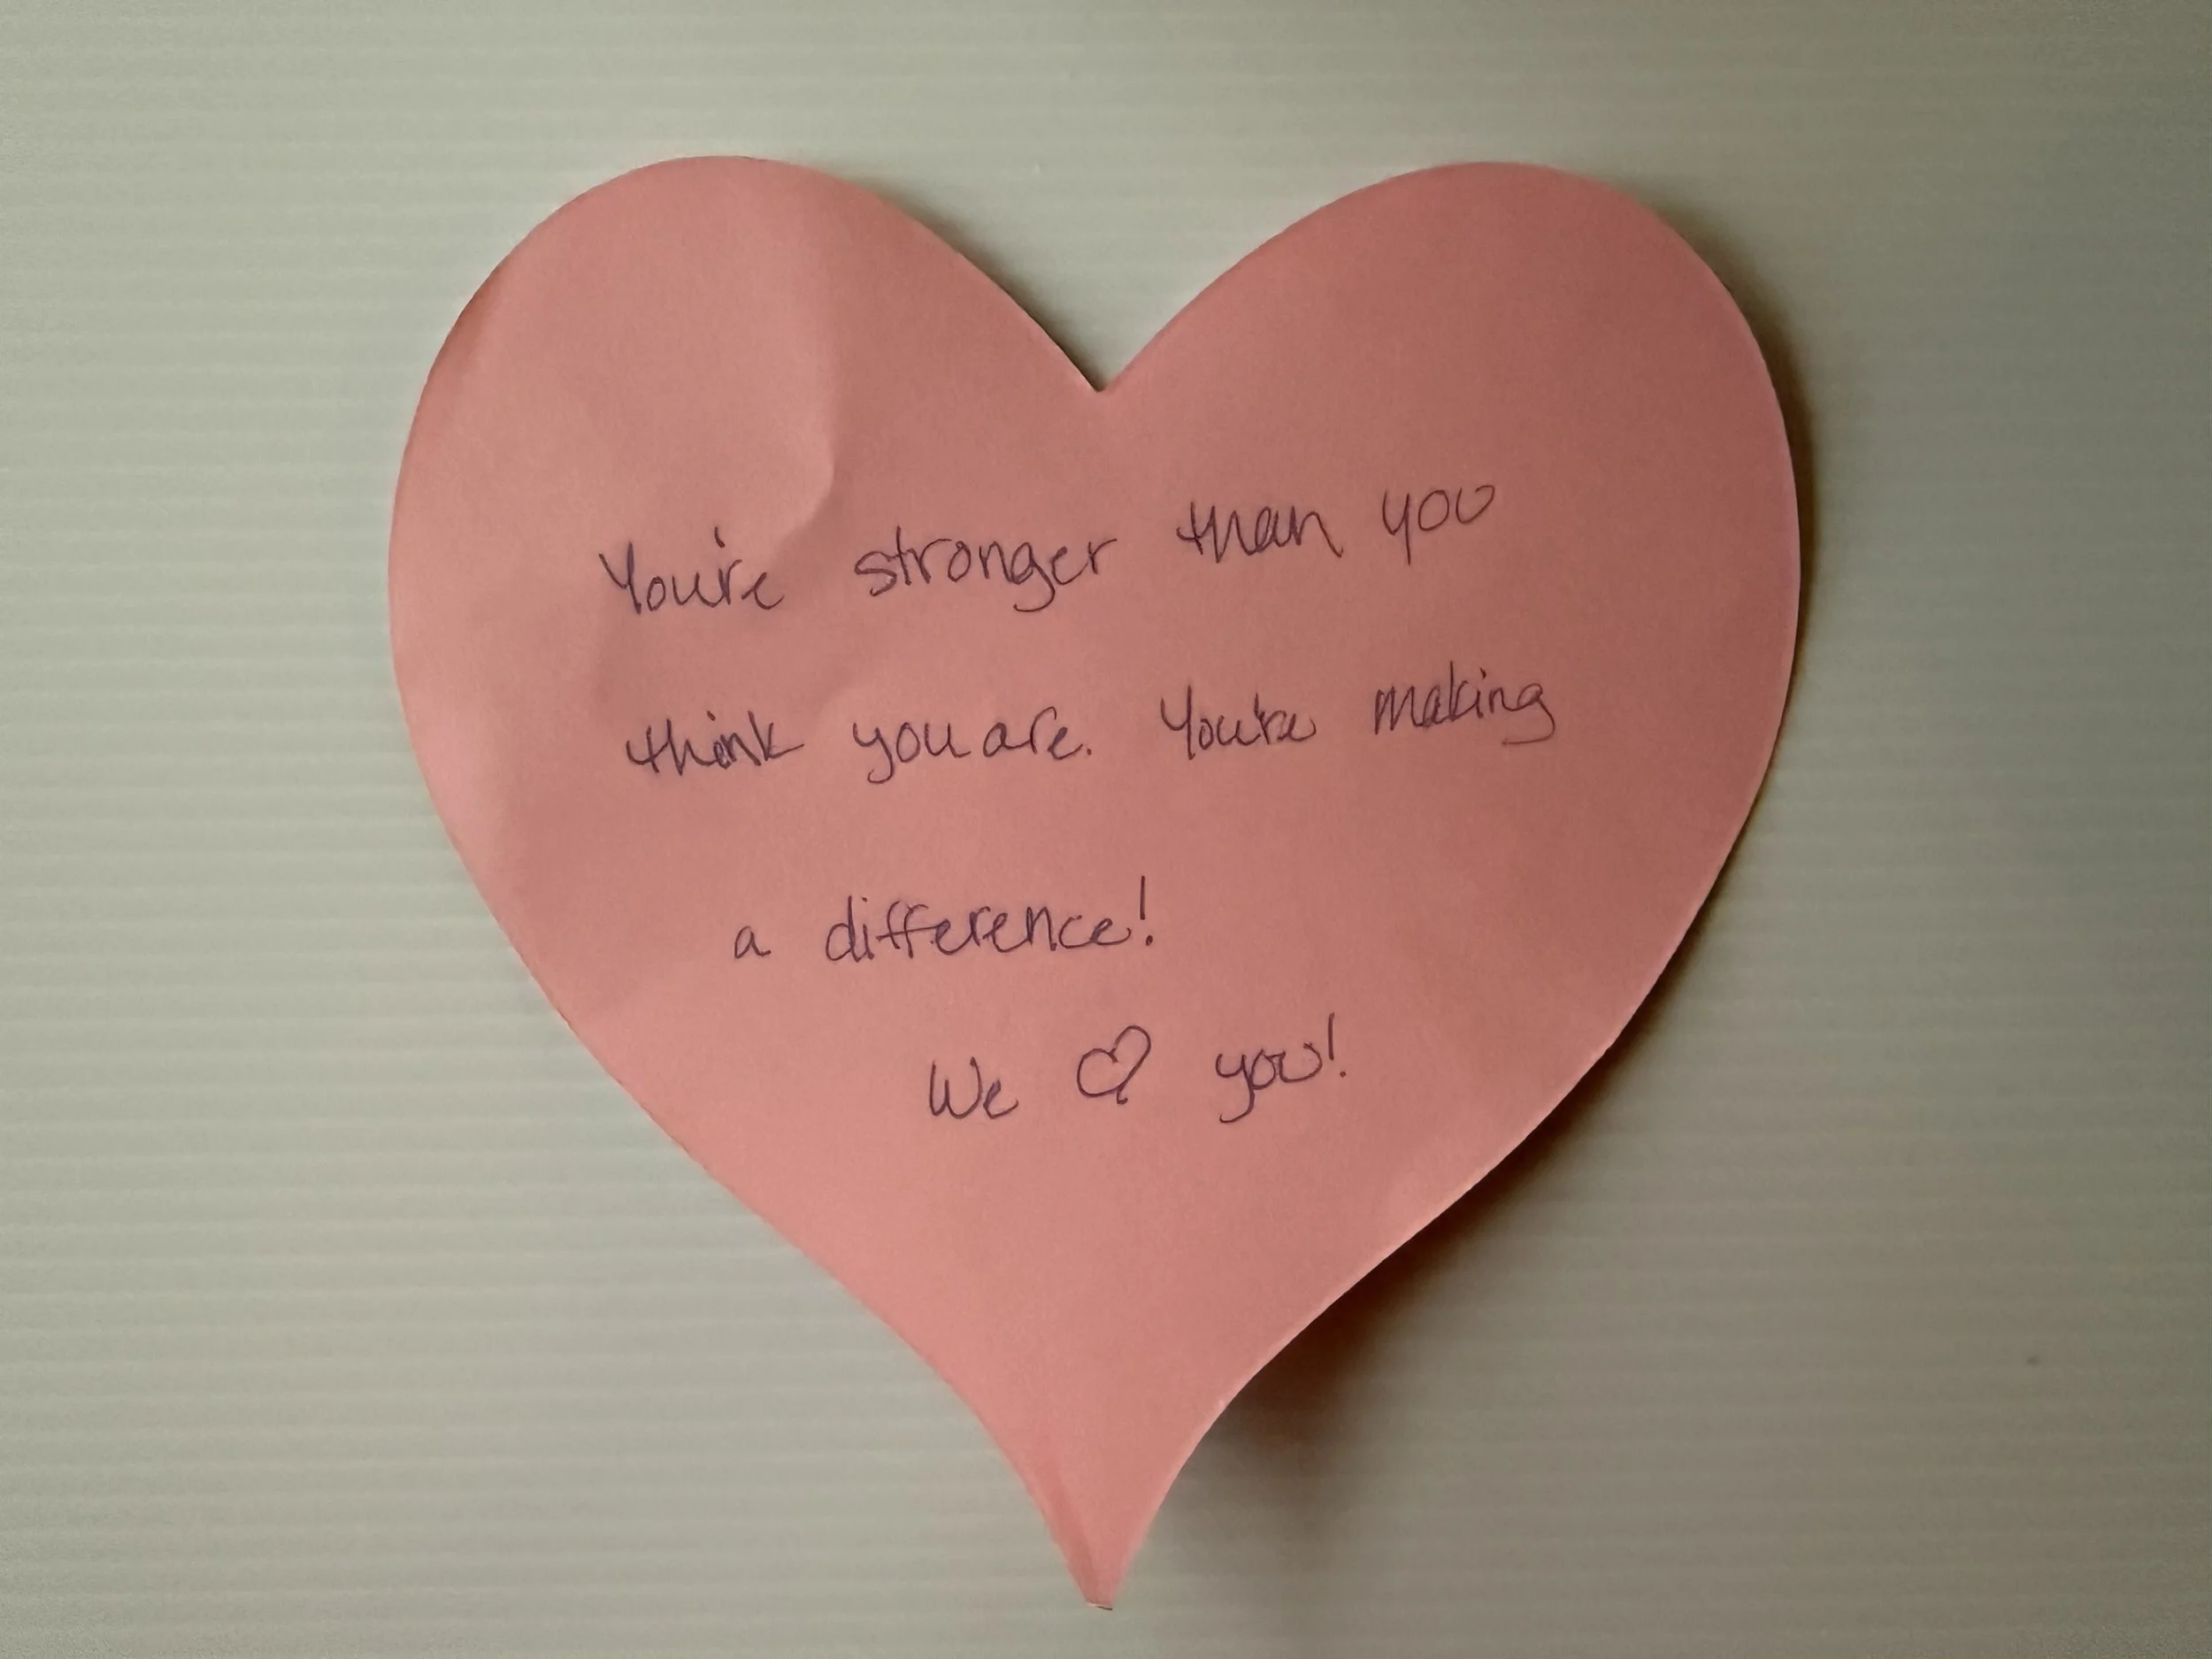 You're stronger than you
think you are. You're making
a difference!
We ♡ you!